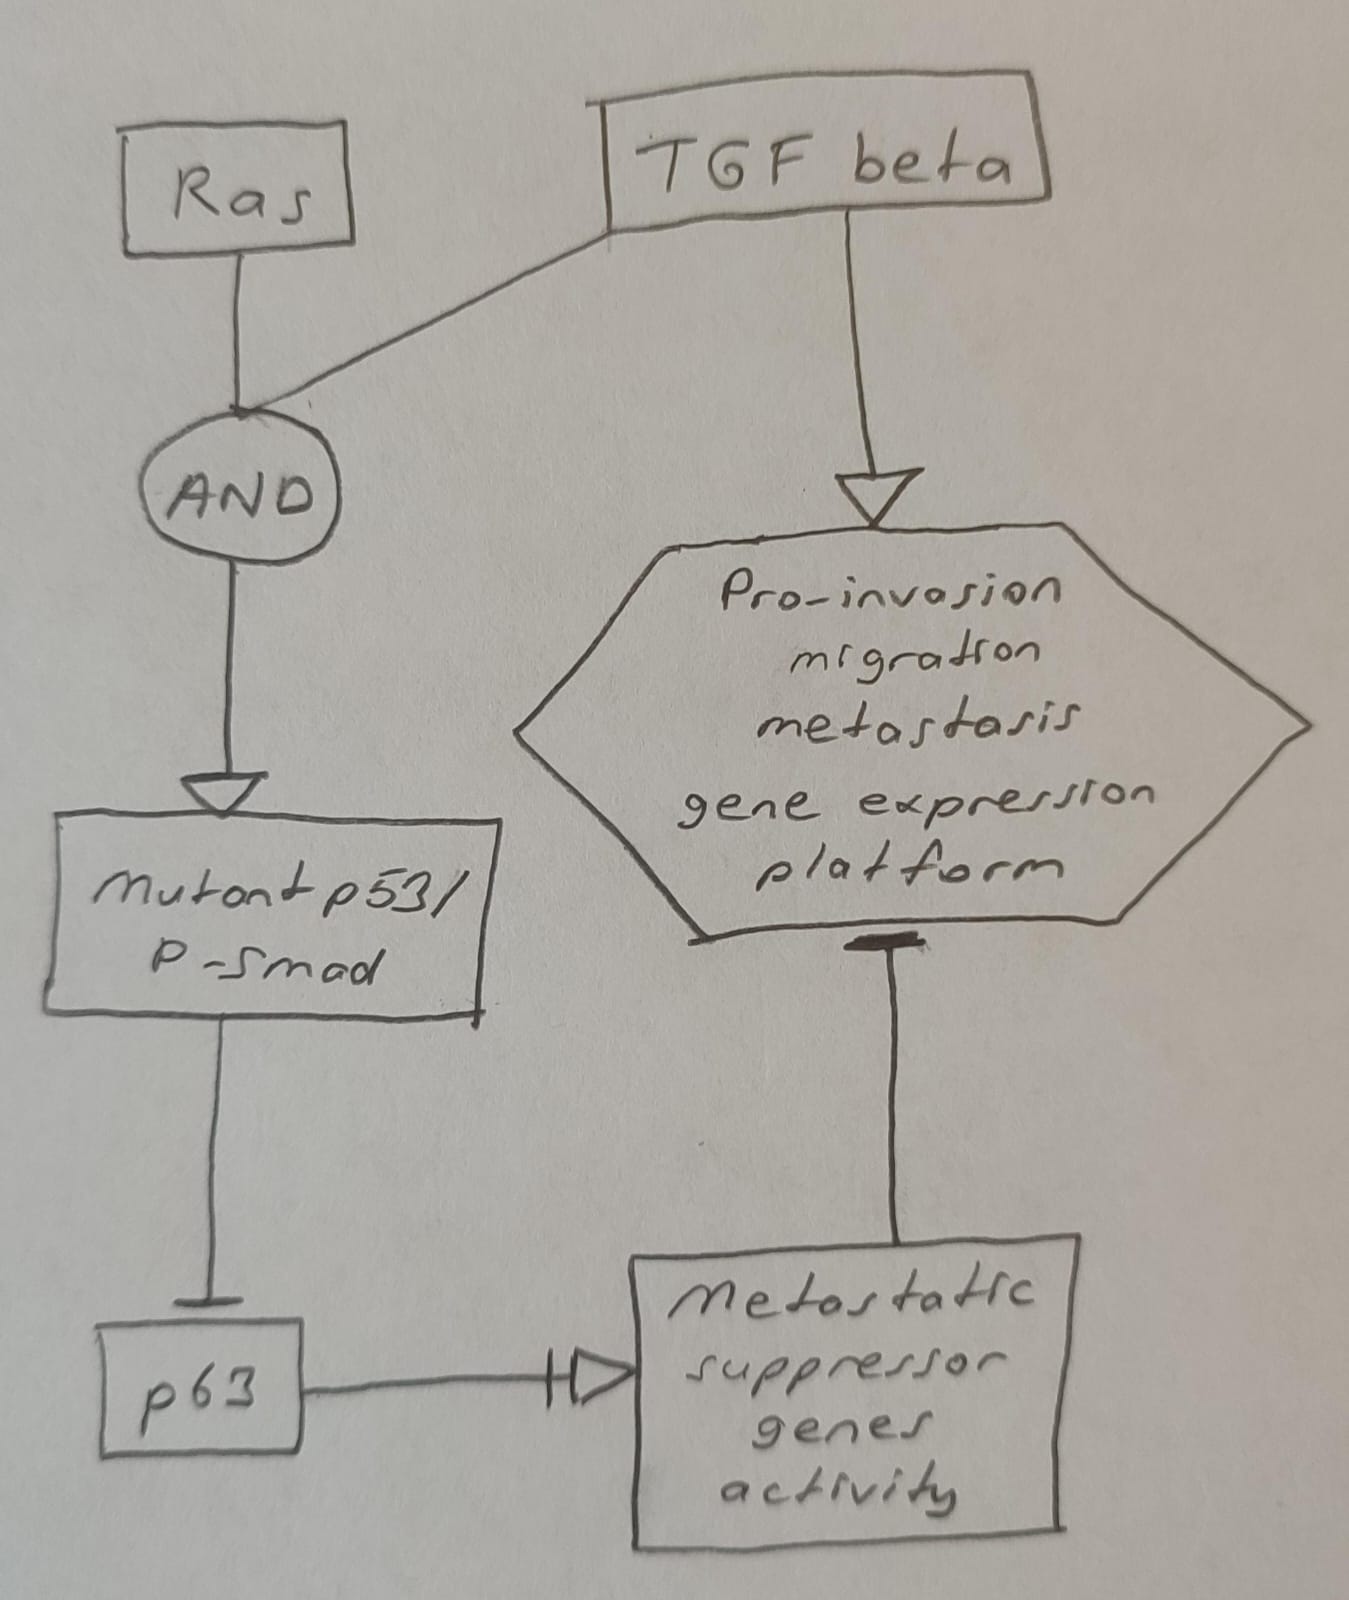 Ras
TGF beta
AND
Pro-invasion
migration
metastasis
gene expression
platform
Mutant p53/
P-Smad
p63
Metastatic
suppressor
genes
activity